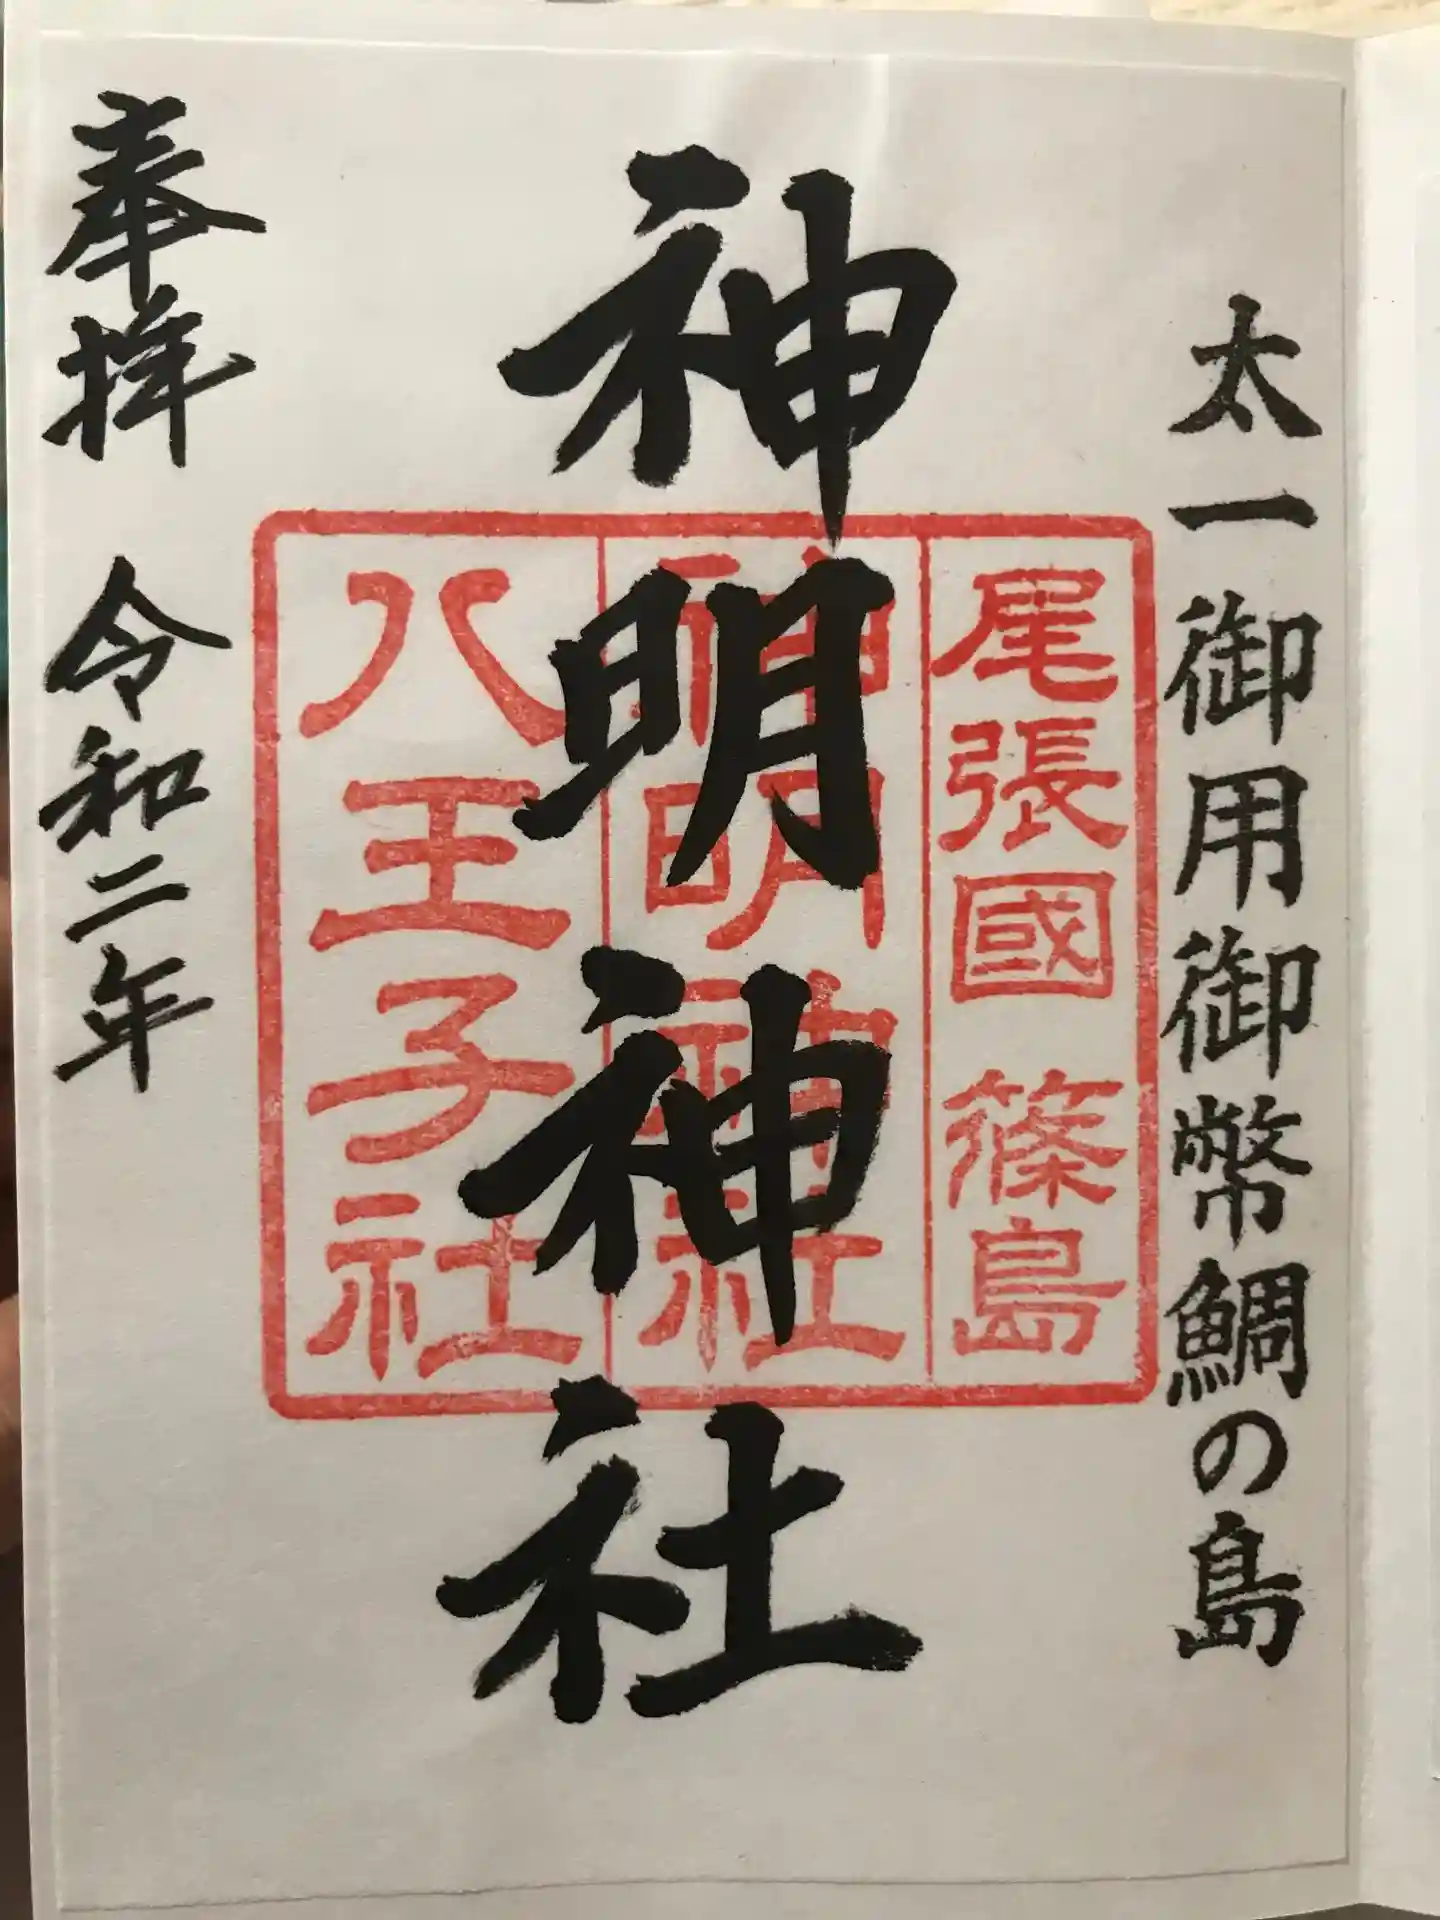 太一御用御幣鯛の島
神明神社
尾張國 篠島
神明神社
八王子社
奉拝 令和二年